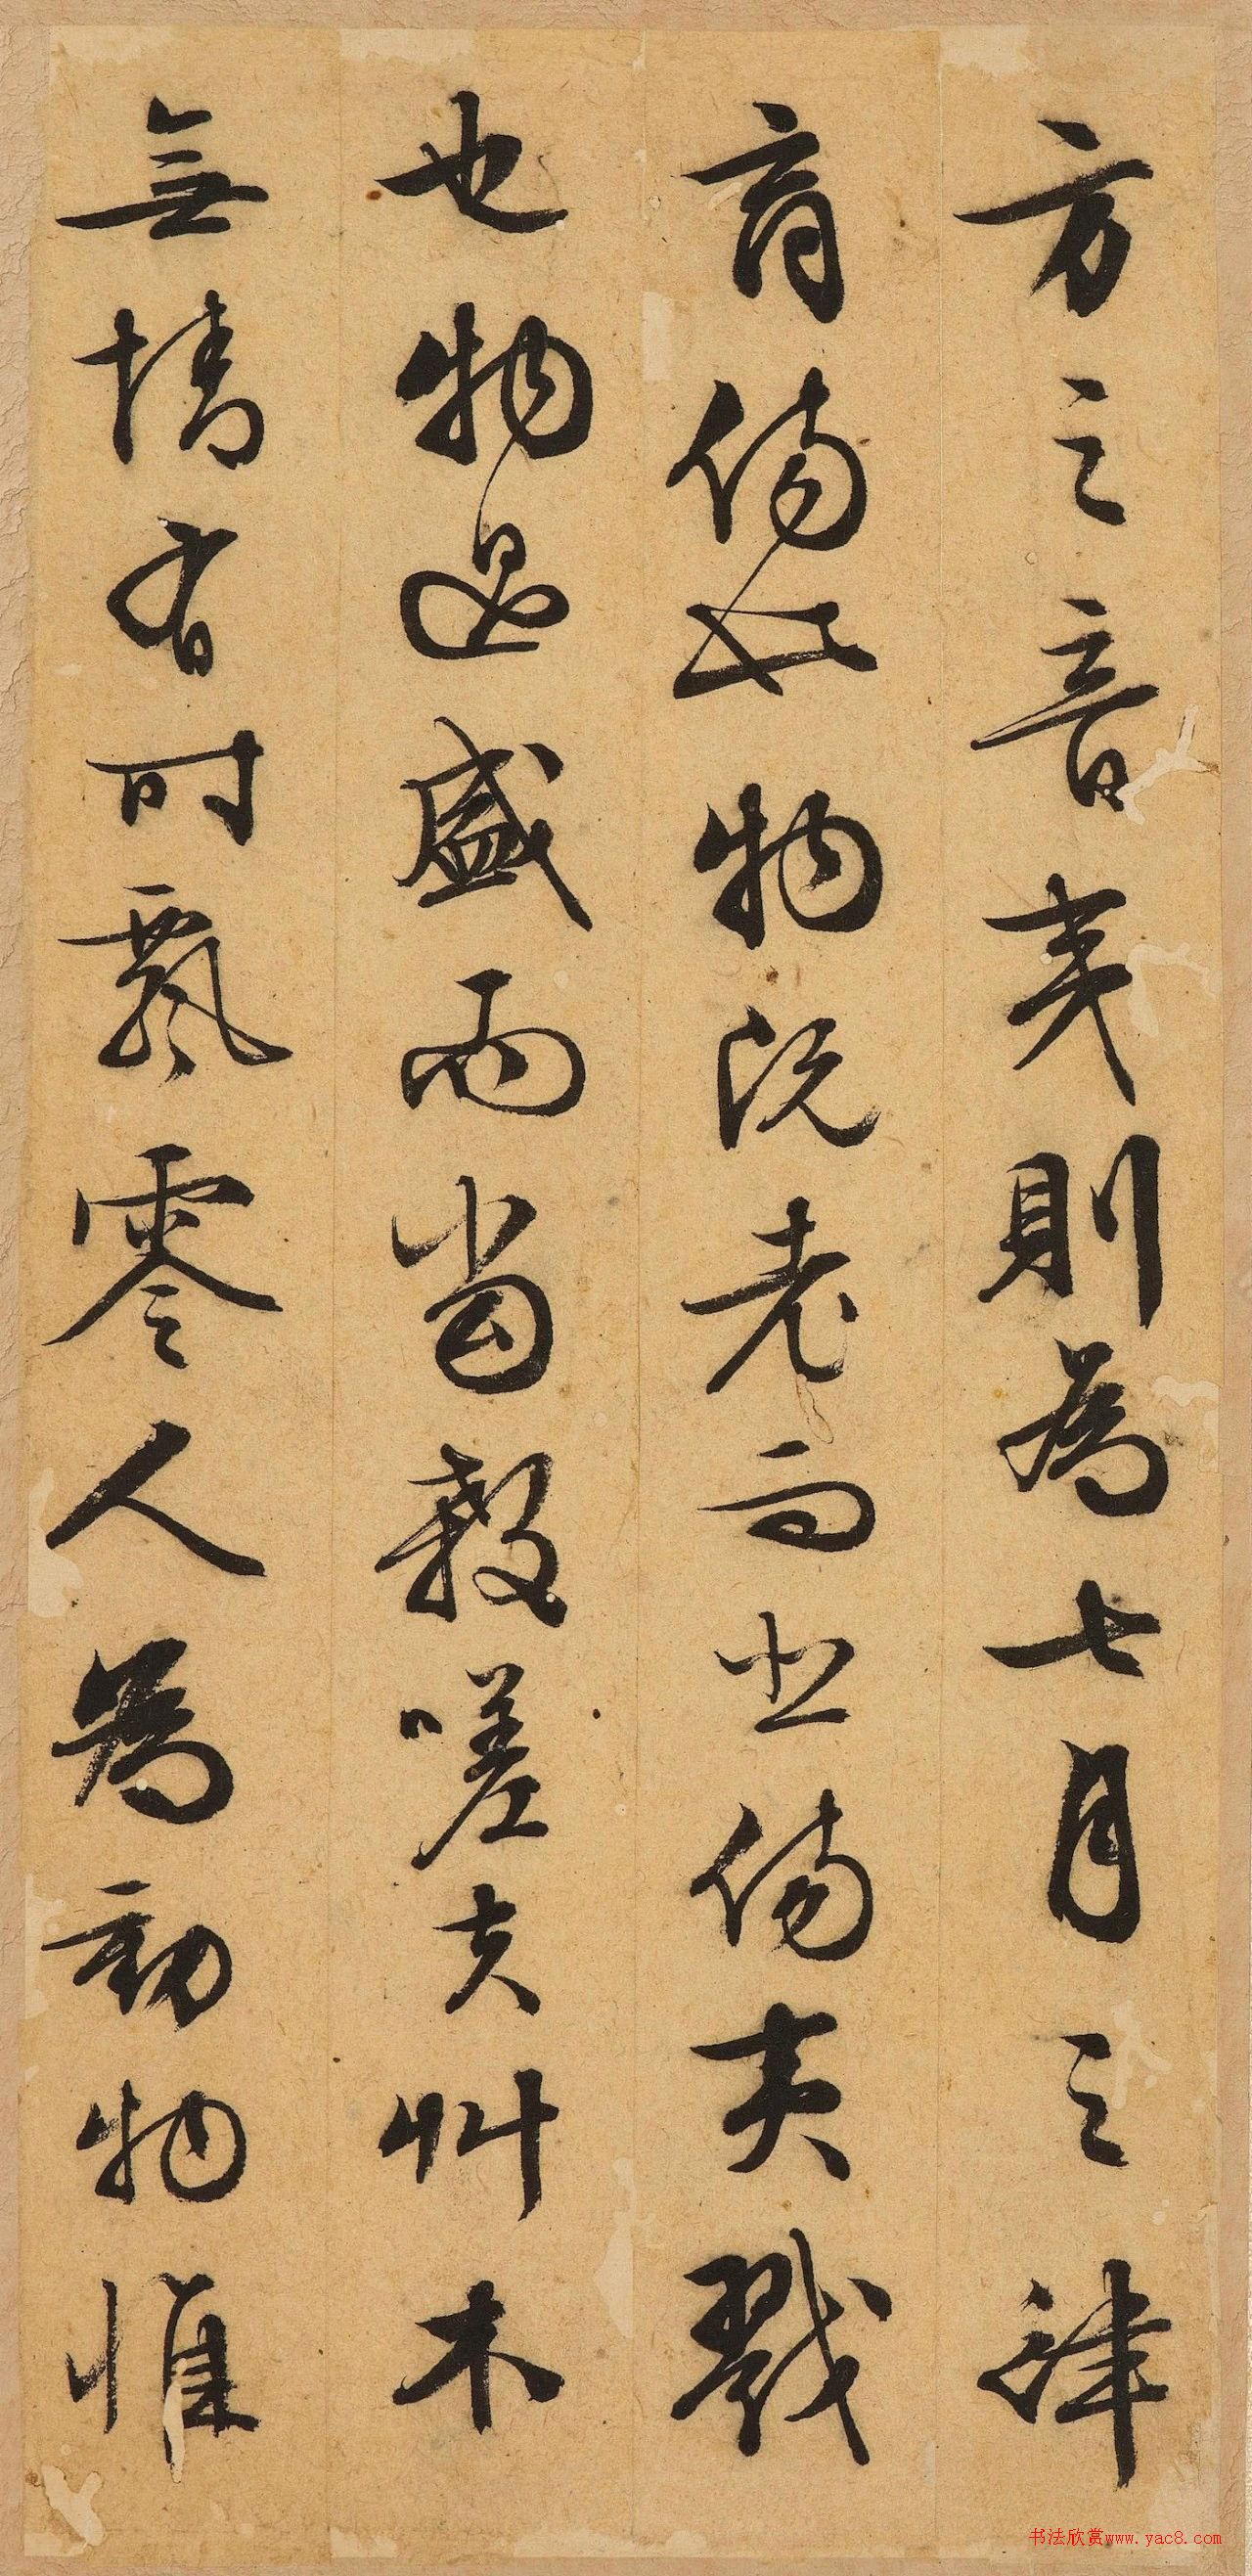 方之音夷則為七月之律
商傷也物既老而悲傷夷戮
也物過盛而當殺嗟夫艸木
無情有時飄零人為動物惟
书法欣赏www.yac8.com